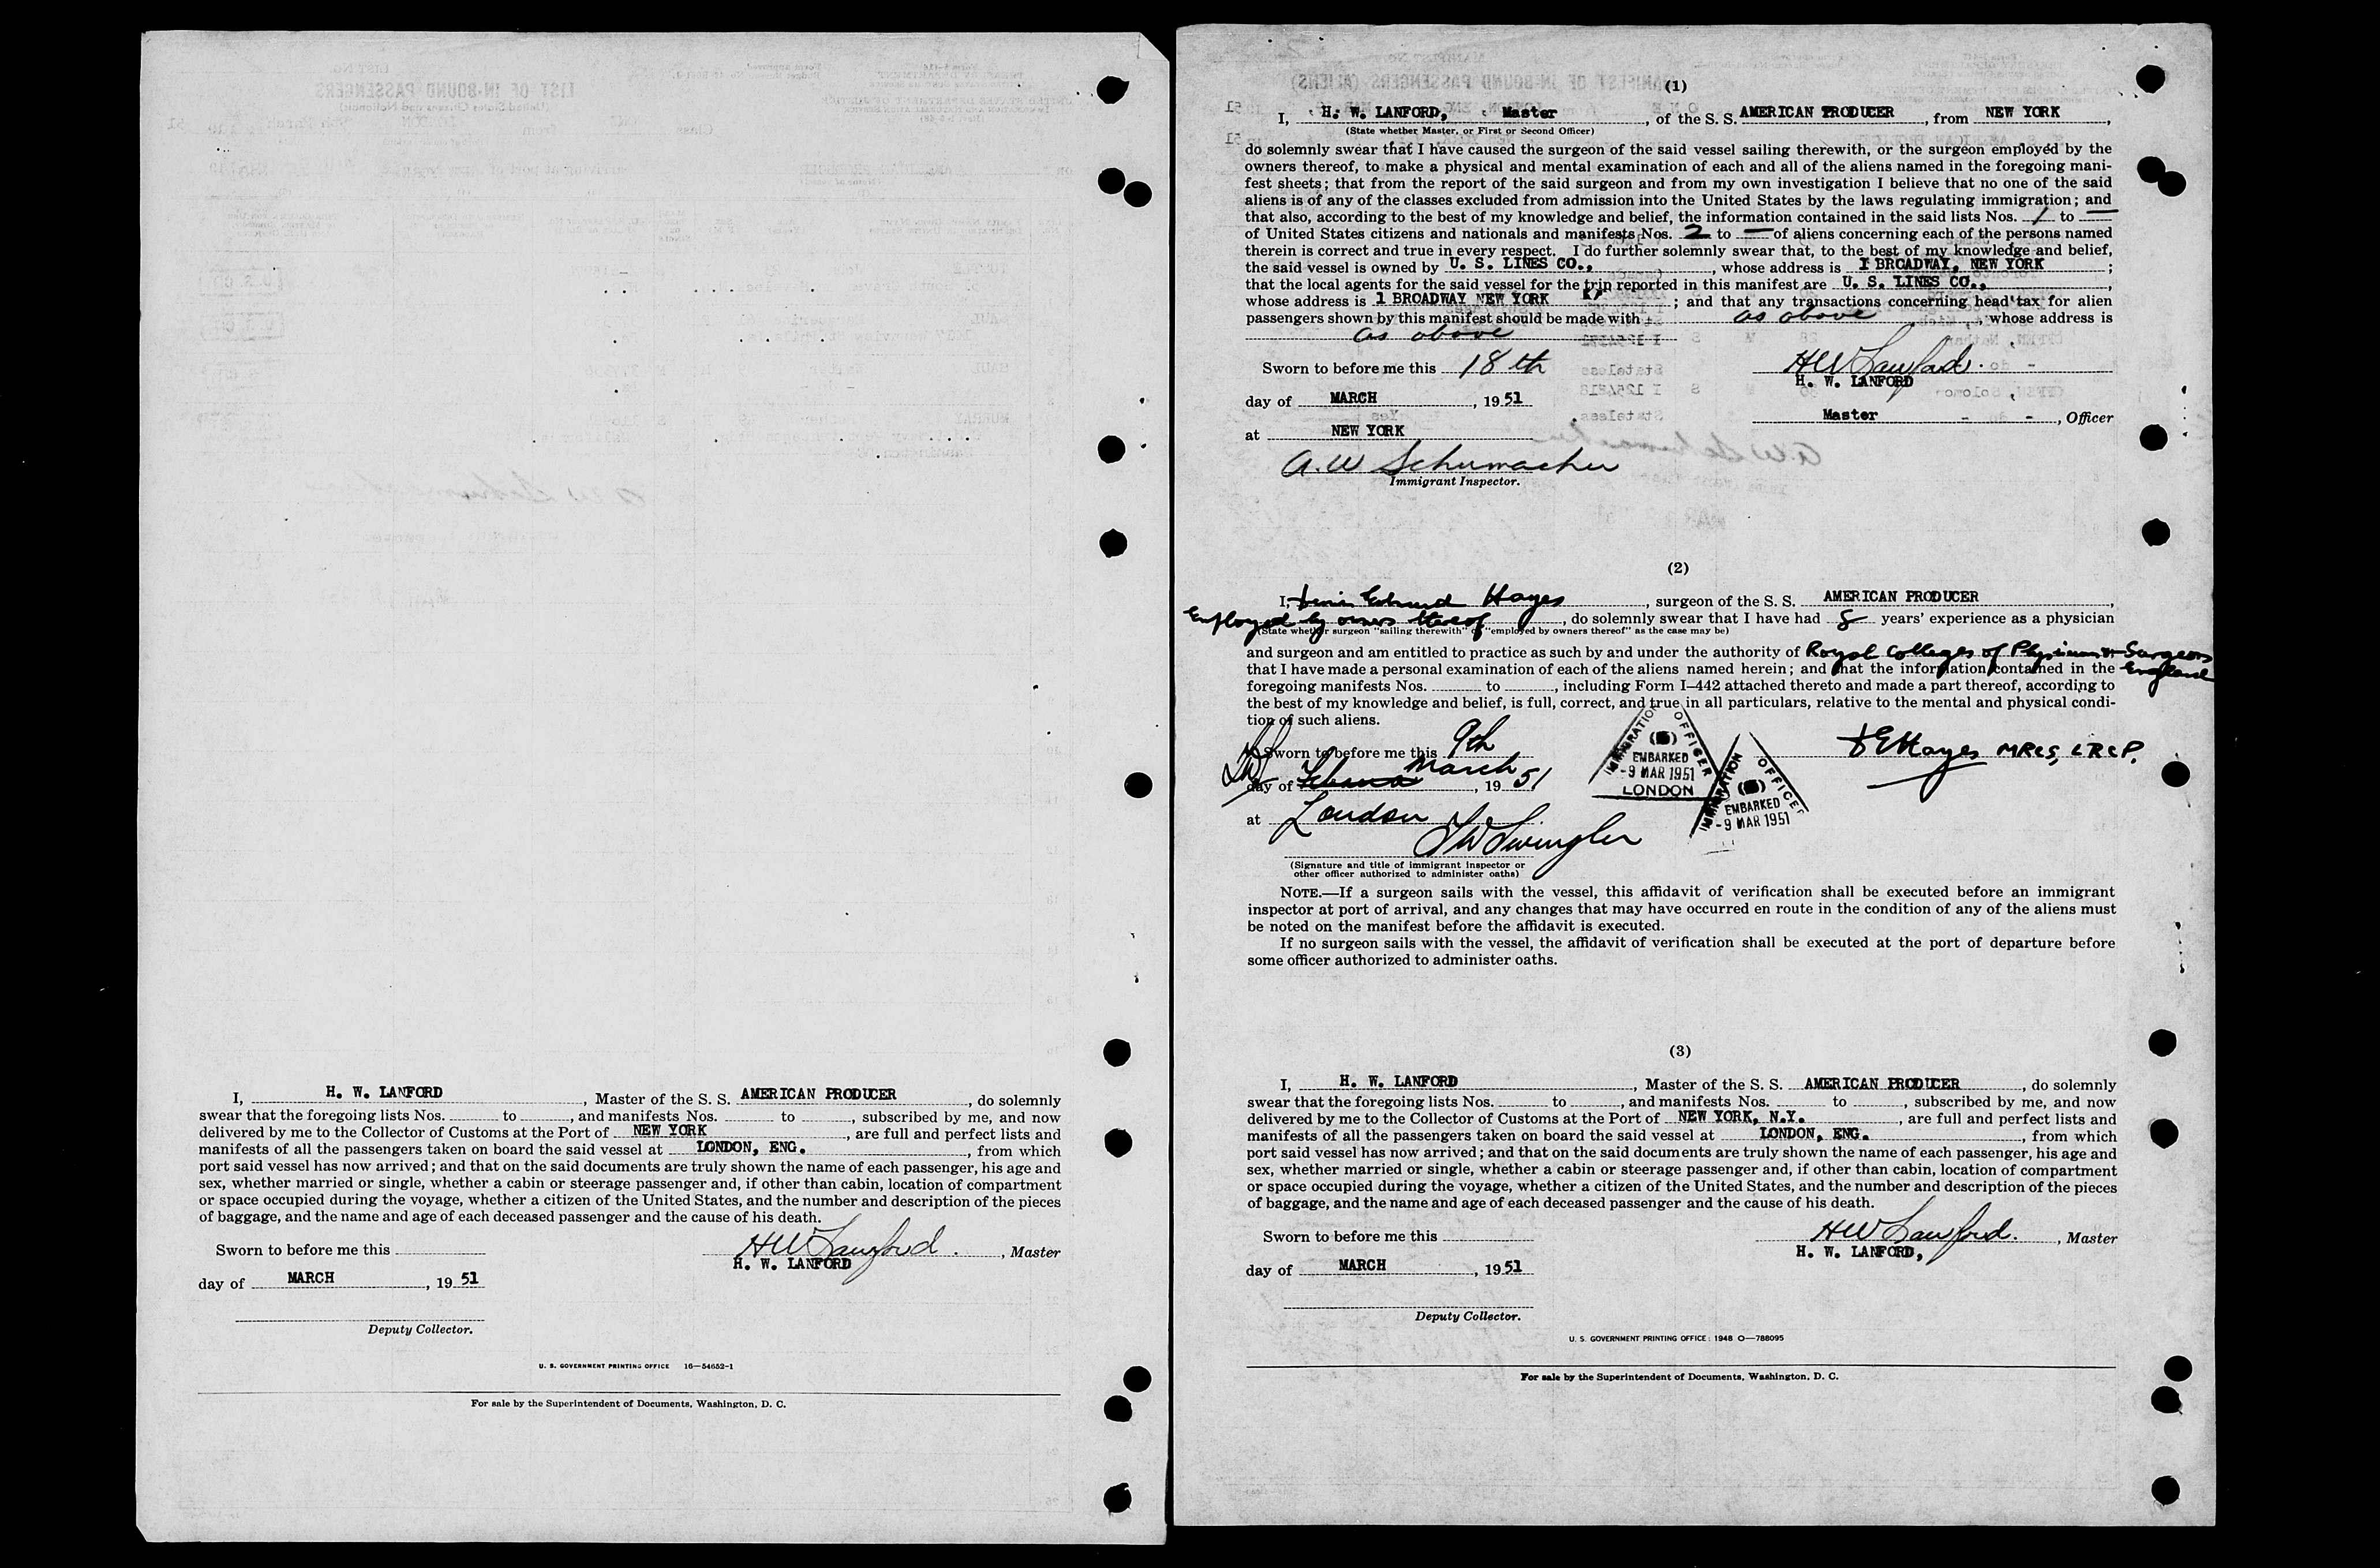 I, H. W. LANFORD, Master of the S. S. AMERICAN PRODUCER, do solemnly
swear that the foregoing lists Nos. to , and manifests Nos. to , subscribed by me, and now
delivered by me to the Collector of Customs at the Port of NEW YORK, are full and perfect lists and
manifests of all the passengers taken on board the said vessel at LONDON, ENG., from which
port said vessel has now arrived; and that on the said documents are truly shown the name of each passenger, his age and
sex, whether married or single, whether a cabin or steerage passenger and, if other than cabin, location of compartment
or space occupied during the voyage, whether a citizen of the United States, and the number and description of the pieces
of baggage, and the name and age of each deceased passenger and the cause of his death.
Sworn to before me this
HW Lanford, Master
H. W. LANFORD
day of MARCH, 19 51
Deputy Collector.
U. S. GOVERNMENT PRINTING OFFICE 16—54652-1
For sale by the Superintendent of Documents, Washington, D. C.
(1)
I, H. W. LANFORD, Master, of the S. S. AMERICAN PRODUCER, from NEW YORK,
(State whether Master, or First or Second Officer)
do solemnly swear that I have caused the surgeon of the said vessel sailing therewith, or the surgeon employed by the
owners thereof, to make a physical and mental examination of each and all of the aliens named in the foregoing mani-
fest sheets; that from the report of the said surgeon and from my own investigation I believe that no one of the said
aliens is of any of the classes excluded from admission into the United States by the laws regulating immigration; and
that also, according to the best of my knowledge and belief, the information contained in the said lists Nos. 1 to —
of United States citizens and nationals and manifests Nos. 2 to — of aliens concerning each of the persons named
therein is correct and true in every respect. I do further solemnly swear that, to the best of my knowledge and belief,
the said vessel is owned by U. S. LINES CO., , whose address is 1 BROADWAY, NEW YORK ;
that the local agents for the said vessel for the trip reported in this manifest are U. S. LINES CO., ,
whose address is 1 BROADWAY NEW YORK ; and that any transactions concerning head tax for alien
passengers shown by this manifest should be made with as above, whose address is
as above
Sworn to before me this 18th
HW Lanford.
H. W. LANFORD
day of MARCH, 19 51
Master, Officer
at NEW YORK
A. W Schumacher
Immigrant Inspector.
(2)
I, Denis Edward Hayes, surgeon of the S. S. AMERICAN PRODUCER,
Employed by owners thereof, do solemnly swear that I have had 8 years' experience as a physician
(State whether surgeon "sailing therewith" or "employed by owners thereof" as the case may be)
and surgeon and am entitled to practice as such by and under the authority of Royal Colleges of Physicians & Surgeons
England
that I have made a personal examination of each of the aliens named herein; and that the information contained in the
foregoing manifests Nos. to , including Form I-442 attached thereto and made a part thereof, according to
the best of my knowledge and belief, is full, correct, and true in all particulars, relative to the mental and physical condi-
tion of such aliens.
Sworn to before me this 9th
DEHayes MRCS, LRCP.
day of March, 19 51
at London
IMMIGRATION OFFICER
EMBARKED
-9 MAR 1951
LONDON
IMMIGRATION OFFICER
EMBARKED
-9 MAR 1951
(Signature and title of immigrant inspector or
other officer authorized to administer oaths)
NOTE.—If a surgeon sails with the vessel, this affidavit of verification shall be executed before an immigrant
inspector at port of arrival, and any changes that may have occurred en route in the condition of any of the aliens must
be noted on the manifest before the affidavit is executed.
If no surgeon sails with the vessel, the affidavit of verification shall be executed at the port of departure before
some officer authorized to administer oaths.
(3)
I, H. W. LANFORD, Master of the S. S. AMERICAN PRODUCER, do solemnly
swear that the foregoing lists Nos. to , and manifests Nos. to , subscribed by me, and now
delivered by me to the Collector of Customs at the Port of NEW YORK, N.Y., are full and perfect lists and
manifests of all the passengers taken on board the said vessel at LONDON, ENG., from which
port said vessel has now arrived; and that on the said documents are truly shown the name of each passenger, his age and
sex, whether married or single, whether a cabin or steerage passenger and, if other than cabin, location of compartment
or space occupied during the voyage, whether a citizen of the United States, and the number and description of the pieces
of baggage, and the name and age of each deceased passenger and the cause of his death.
Sworn to before me this
HW Lanford., Master
H. W. LANFORD,
day of MARCH, 19 51
Deputy Collector.
U. S. GOVERNMENT PRINTING OFFICE: 1948 O—788095
For sale by the Superintendent of Documents, Washington, D. C.